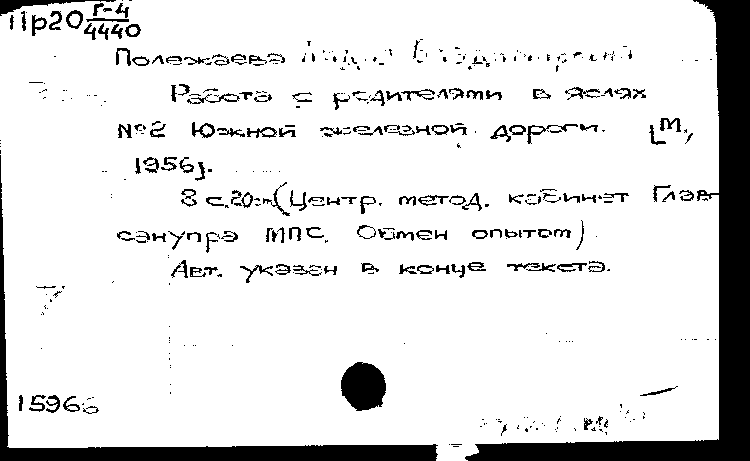 Пр20 Г-4
4440
Полежаева Лидия Владимировна
Работа с родителями в яслях
№2 Южной железной дороги. [М.,
1956].
8 с. 20см (Центр. метод. кабинет Глав-
санупра МПС. Обмен опытом)
Авт. указан в конце текста.
15966